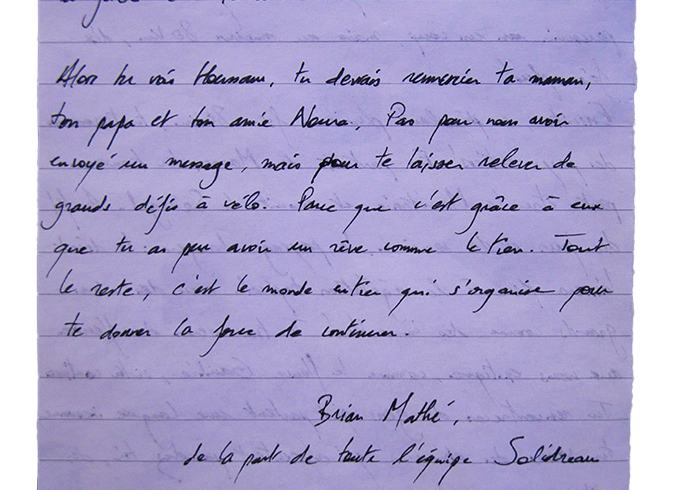 Alors tu vois Houmam, tu devrais remercier ta maman,
ton papa et ton amie Noura. Pas pour nous avoir
envoyé un message, mais pour te laisser relever de
grands défis à vélo. Parce que c'est grâce à eux
que tu as pu avoir un rêve comme le tien. Tout
le reste, c'est le monde entier qui s'organise pour
te donner la force de continuer.
Brian Mathé,
de la part de toute l'équipe Solidream